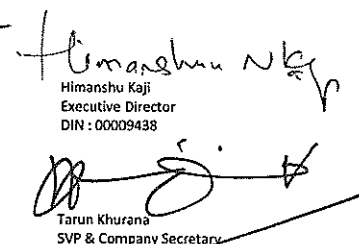 Himanshu Kaji
Executive Director
DIN : 00009438
Tarun Khurana
SVP & Company Secretary